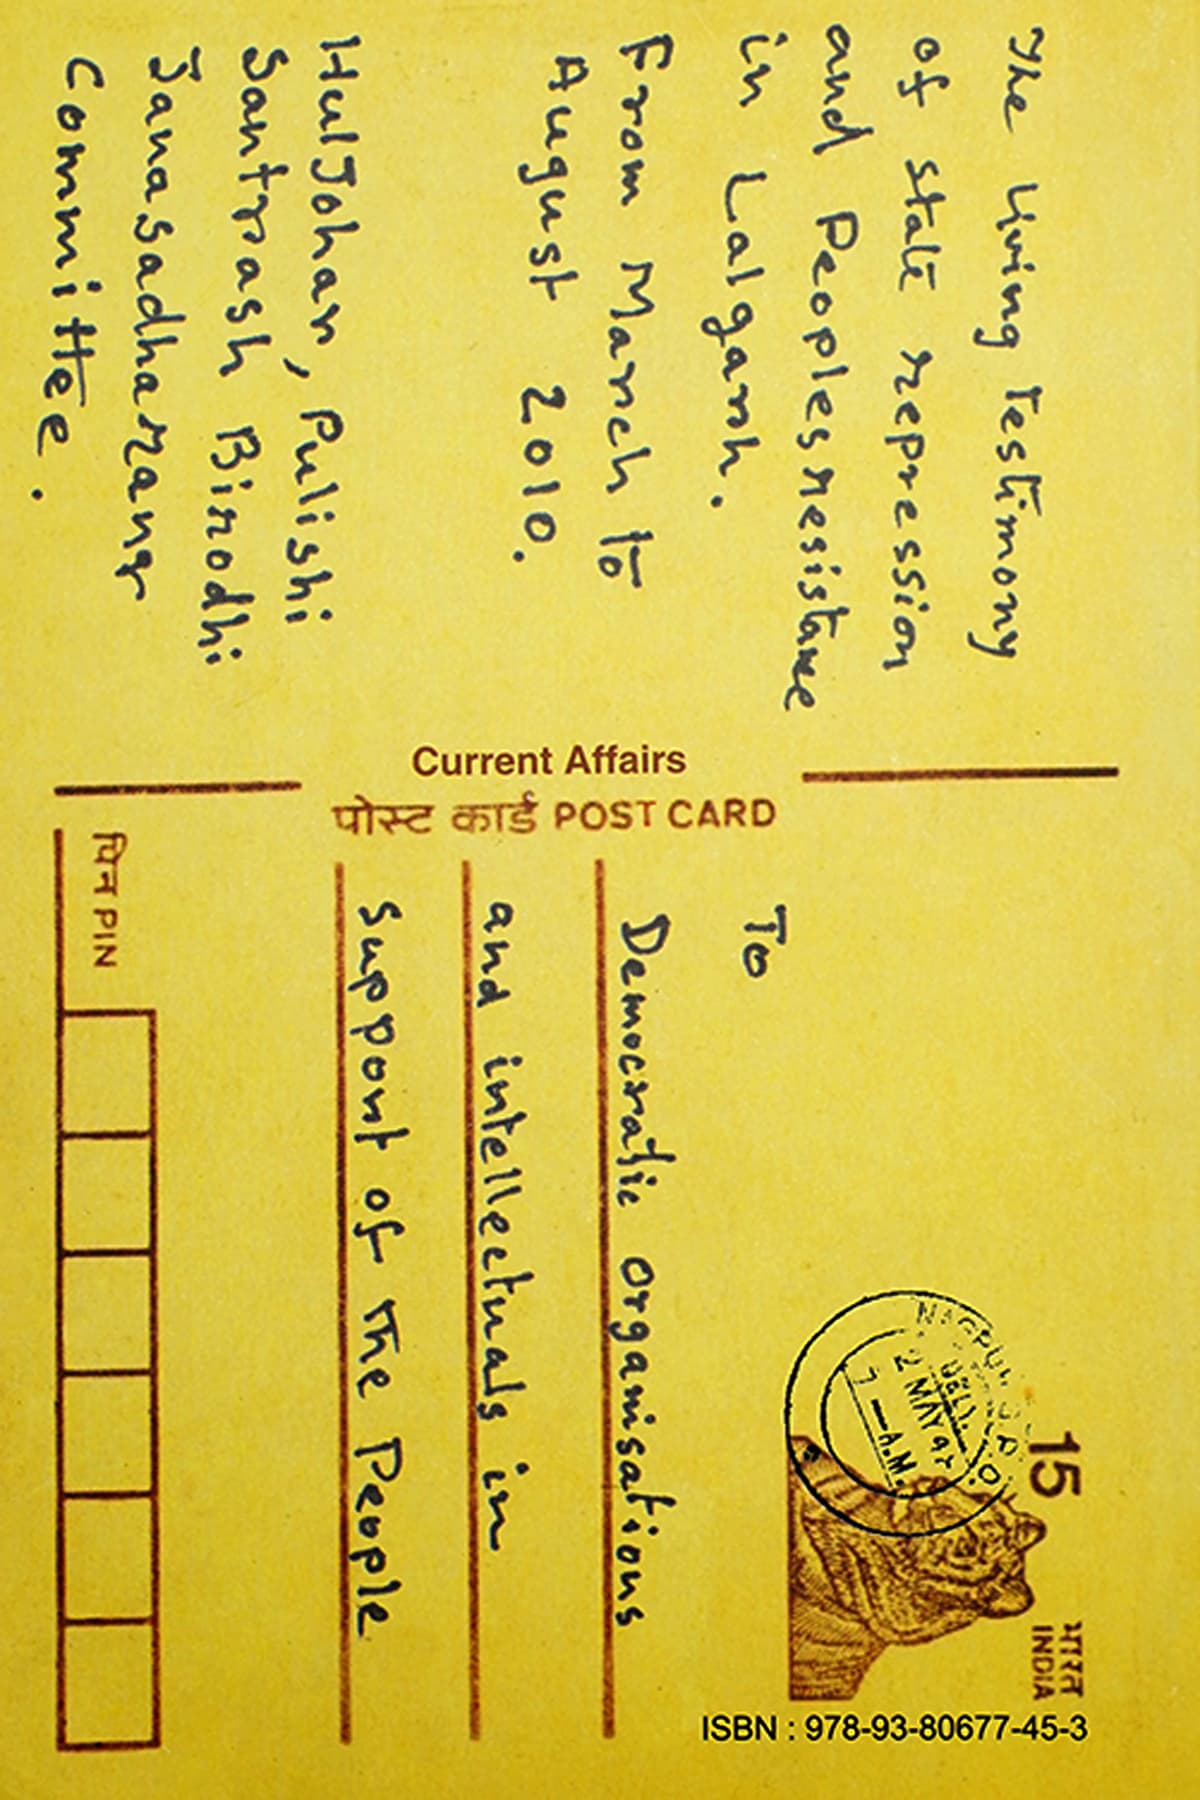 The living Testimony
of state repression
and Peoples resistance
in Lalgarh.
From March to
August 2010.
Hul Johar, Pulishi
Santrash Birodhi
Janasadharaner
Committee.
Current Affairs
पोस्ट कार्ड POST CARD
To
Democratic organisations
and intellectuals in
Support of the People
पिन PIN
15
भारत
INDIA
2 MAY
7 - A.M.
ISBN : 978-93-80677-45-3